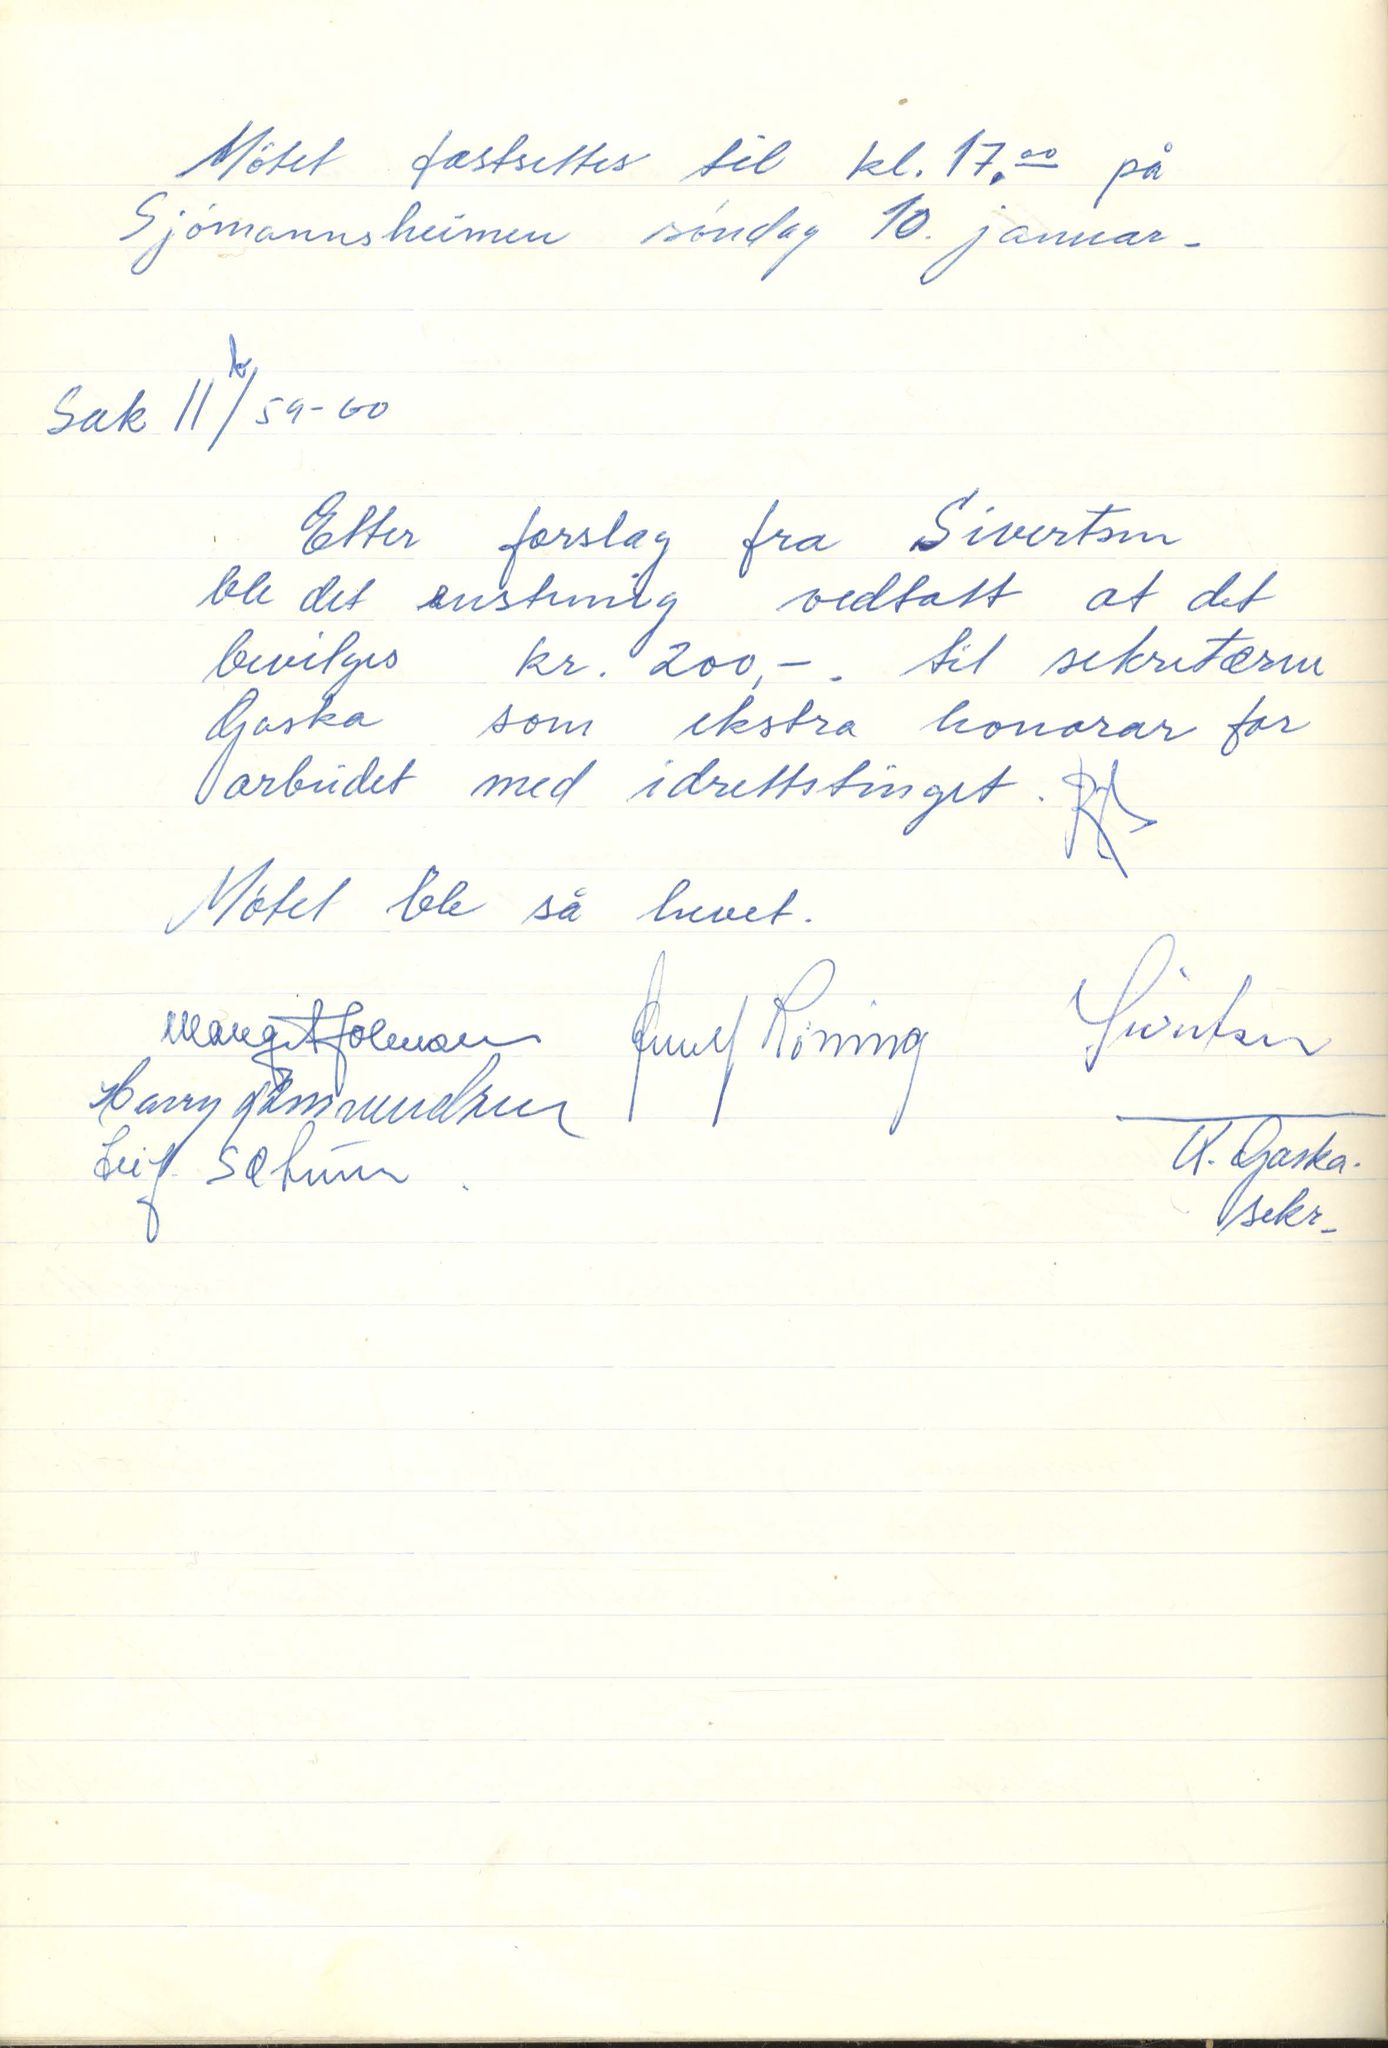 Mötet fastsettes til kl. 17.00 på
Sjömannsheimen söndag 10. januar -
Sak 11 b/59-60
Etter forslag fra Sivertsen
ble det enstemig vedtatt at det
bevilges kr. 200,-. til sekretæren
Gaska som ekstra honorar for
arbeidet med idrettstinget.
Mötet ble så hevet.
Margit Johnsen Röning Sivertsen
Harry Amundsen
Leif
K. Gaska.
sekr-